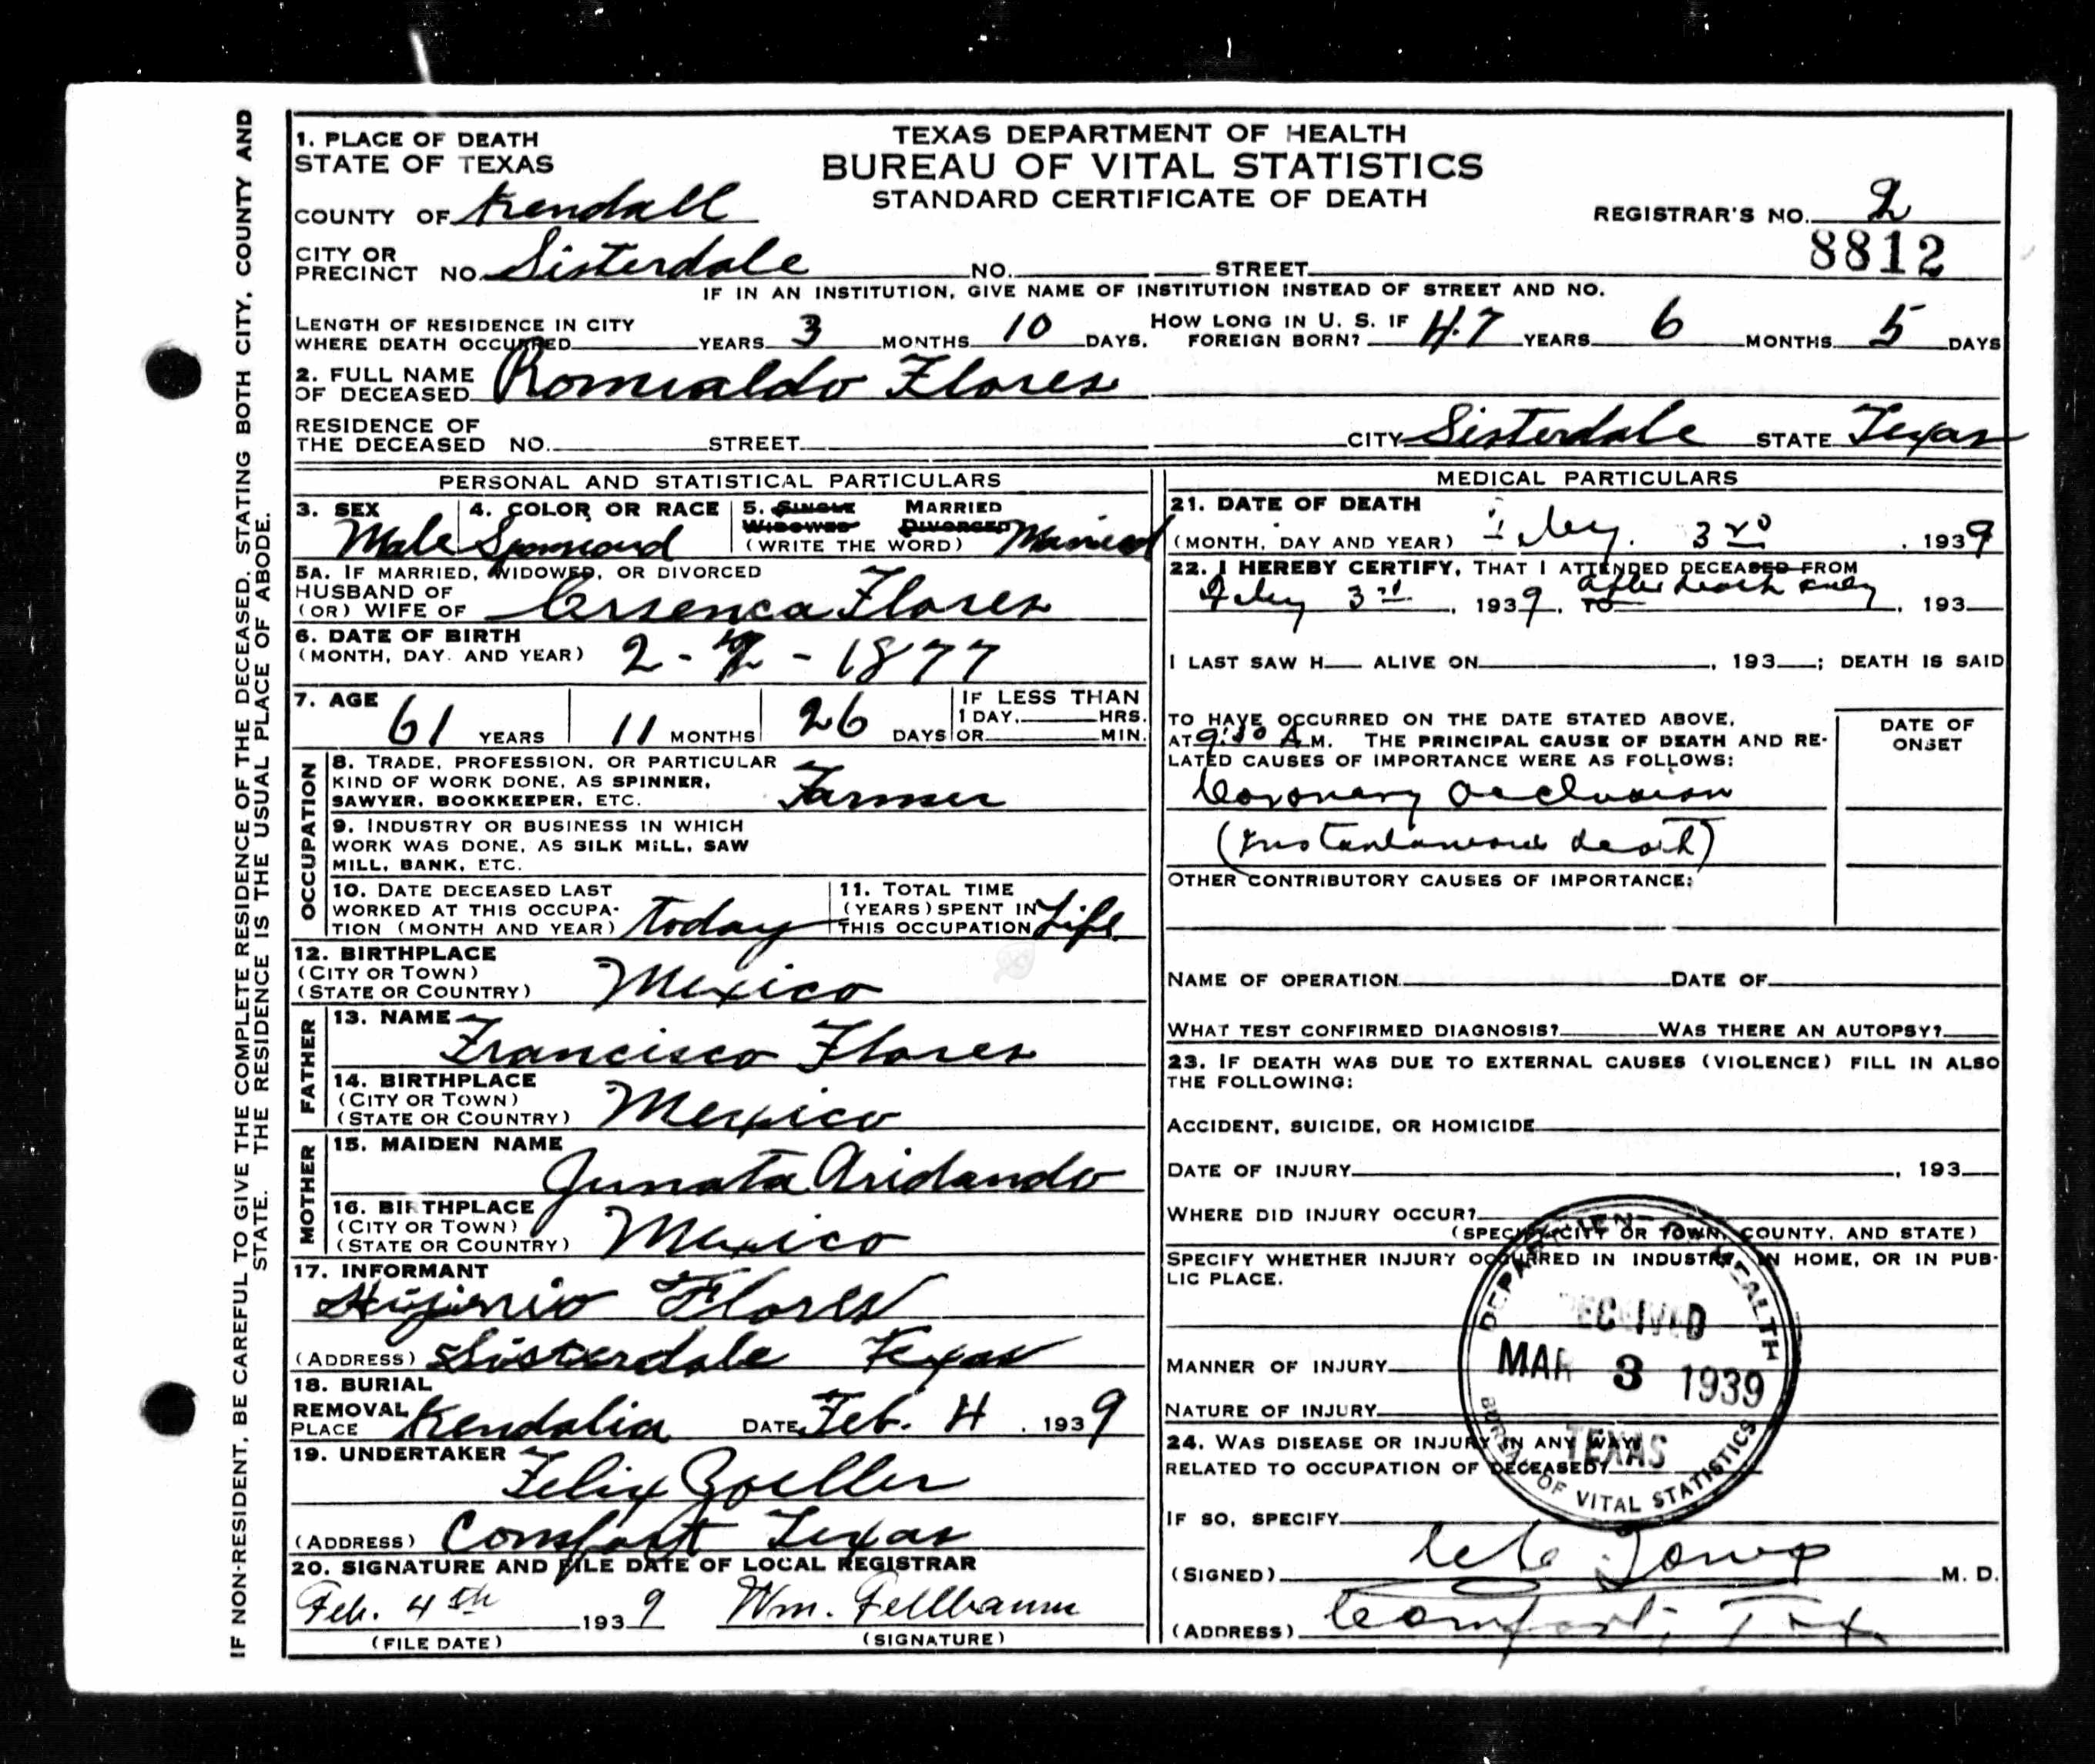 TEXAS DEPARTMENT OF HEALTH
BUREAU OF VITAL STATISTICS
STANDARD CERTIFICATE OF DEATH
1. PLACE OF DEATH
STATE OF TEXAS
COUNTY OF Kendall
REGISTRAR'S NO. 2
8812
CITY OR
PRECINCT NO. Sisterdale NO. STREET
IF IN AN INSTITUTION, GIVE NAME OF INSTITUTION INSTEAD OF STREET AND NO.
LENGTH OF RESIDENCE IN CITY
WHERE DEATH OCCURRED YEARS 3 MONTHS 10 DAYS.
HOW LONG IN U. S. IF
FOREIGN BORN? 47 YEARS 6 MONTHS 5 DAYS
2. FULL NAME
OF DECEASED Romualdo Flores
RESIDENCE OF
THE DECEASED NO. STREET CITY Sisterdale STATE Texas
PERSONAL AND STATISTICAL PARTICULARS
3. SEX
Male
4. COLOR OR RACE
5. SINGLE MARRIED
WIDOWED DIVORCED
(WRITE THE WORD) Married
5A. IF MARRIED, WIDOWED, OR DIVORCED
HUSBAND OF
(OR) WIFE OF Flores
6. DATE OF BIRTH
(MONTH, DAY. AND YEAR) 2 - - 1877
7. AGE
61 YEARS 11 MONTHS 26 DAYS
IF LESS THAN
1 DAY, HRS.
OR MIN.
OCCUPATION
8. TRADE, PROFESSION, OR PARTICULAR
KIND OF WORK DONE, AS SPINNER,
SAWYER, BOOKKEEPER, ETC. Farmer
9. INDUSTRY OR BUSINESS IN WHICH
WORK WAS DONE, AS SILK MILL, SAW
MILL, BANK, ETC.
10. DATE DECEASED LAST
WORKED AT THIS OCCUPA-
TION (MONTH AND YEAR) Today
11. TOTAL TIME
(YEARS) SPENT IN
THIS OCCUPATION Life
12. BIRTHPLACE
(CITY OR TOWN)
(STATE OR COUNTRY) Mexico
FATHER
13. NAME
Francisco Flores
14. BIRTHPLACE
(CITY OR TOWN)
(STATE OR COUNTRY) Mexico
MOTHER
15. MAIDEN NAME
16. BIRTHPLACE
(CITY OR TOWN)
(STATE OR COUNTRY) Mexico
17. INFORMANT
Flores
(ADDRESS) Sisterdale Texas
18. BURIAL
REMOVAL
PLACE Kendalia DATE Feb. 4, 1939
19. UNDERTAKER
Felix Zoeller
(ADDRESS) Comfort Texas
20. SIGNATURE AND FILE DATE OF LOCAL REGISTRAR
Feb. 4th 1939 Wm. Fellbaum
(FILE DATE) (SIGNATURE)
MEDICAL PARTICULARS
21. DATE OF DEATH
(MONTH, DAY AND YEAR) Feby. 3rd, 1939
22. I HEREBY CERTIFY, THAT I ATTENDED DECEASED FROM
Feby 3rd, 1939, TO after death only, 193
I LAST SAW H ALIVE ON , 193 ; DEATH IS SAID
TO HAVE OCCURRED ON THE DATE STATED ABOVE,
AT 9:30 A M. THE PRINCIPAL CAUSE OF DEATH AND RE-
LATED CAUSES OF IMPORTANCE WERE AS FOLLOWS:
DATE OF
ONSET
Coronary Occlusion
(Instantaneous death)
OTHER CONTRIBUTORY CAUSES OF IMPORTANCE:
NAME OF OPERATION DATE OF
WHAT TEST CONFIRMED DIAGNOSIS? WAS THERE AN AUTOPSY?
23. IF DEATH WAS DUE TO EXTERNAL CAUSES (VIOLENCE) FILL IN ALSO
THE FOLLOWING:
ACCIDENT, SUICIDE, OR HOMICIDE
DATE OF INJURY , 193
WHERE DID INJURY OCCUR?
(SPECIFY CITY OR TOWN, COUNTY, AND STATE)
SPECIFY WHETHER INJURY OCCURRED IN INDUSTRY, IN HOME, OR IN PUB-
LIC PLACE.
MANNER OF INJURY
NATURE OF INJURY
24. WAS DISEASE OR INJURY IN ANY WAY
RELATED TO OCCUPATION OF DECEASED?
IF SO, SPECIFY
(SIGNED) M. D.
(ADDRESS) Comfort, Tex.
DEPARTMENT OF HEALTH
RECEIVED
MAR 3 1939
TEXAS
BUREAU OF VITAL STATISTICS
IF NON-RESIDENT, BE CAREFUL TO GIVE THE COMPLETE RESIDENCE OF THE DECEASED, STATING BOTH CITY, COUNTY AND
STATE. THE RESIDENCE IS THE USUAL PLACE OF ABODE.